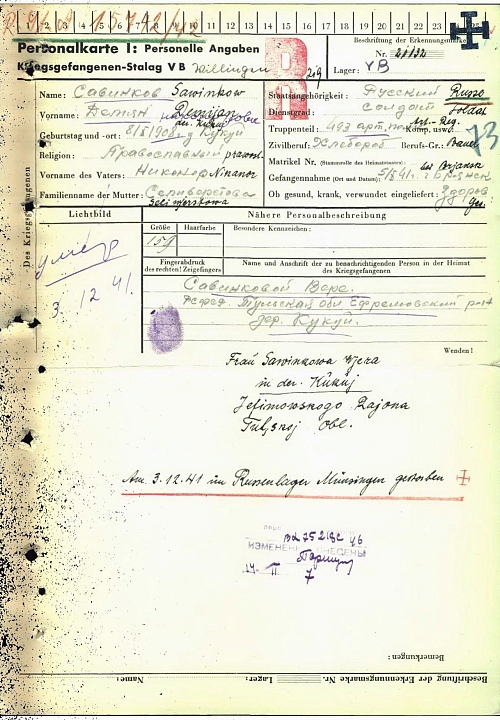 1 2 3 4 5 6 7 8 9 10 11 12 13 14 15 16 17 18 19 20 21 22 23 24 25
Personalkarte I: Personelle Angaben
Kriegsgefangenen-Stalag V B Villingen
Beschriftung der Erkennungsmarke
Nr. 21132
Lager: VB
Name: Савинков Sawinkow
Vorname: Демян Demjan
Geburtstag und -ort: 8/II 1908 д Кукуй
Religion: Православный pravosl.
Vorname des Vaters: Никонор Nikanor
Familienname der Mutter: Селиверстова
Seliwerstowa
Staatsangehörigkeit: Русский Russe
Dienstgrad: солдат Soldat
Truppenteil: 493 арт. пол Art.-Reg. Komp. usw.
Zivilberuf: Хлебороб Berufs-Gr.: Bauer
Matrikel Nr. (Stammrolle des Heimatstaates):
Gefangennahme (Ort und Datum): 5/X 41 г Брянск
Ob gesund, krank, verwundet eingeliefert: Здоров
Des Kriegsgefangenen
Lichtbild
Nähere Personalbeschreibung
Größe
Haarfarbe
Besondere Kennzeichen:
159
Fingerabdruck
des rechten! Zeigefingers
Name und Anschrift der zu benachrichtigenden Person in der Heimat
des Kriegsgefangenen
умер
3. 12 41.
Савинковой Вере.
РСФСР. Тульская обл Ефремовский
дер. Кукуй.
Wenden!
Frau Sawinkowa Wera
in der. Kukuj
Jefimowskogo Rajona
Tuljskoj Obl.
Am 3.12.41 im Russenlager Münsingen gestorben
ИЗМЕНЕНИЯ ВНЕСЕНЫ
Bemerkungen:
Beschriftung der Erkennungsmarke Nr.
Lager:
Name: